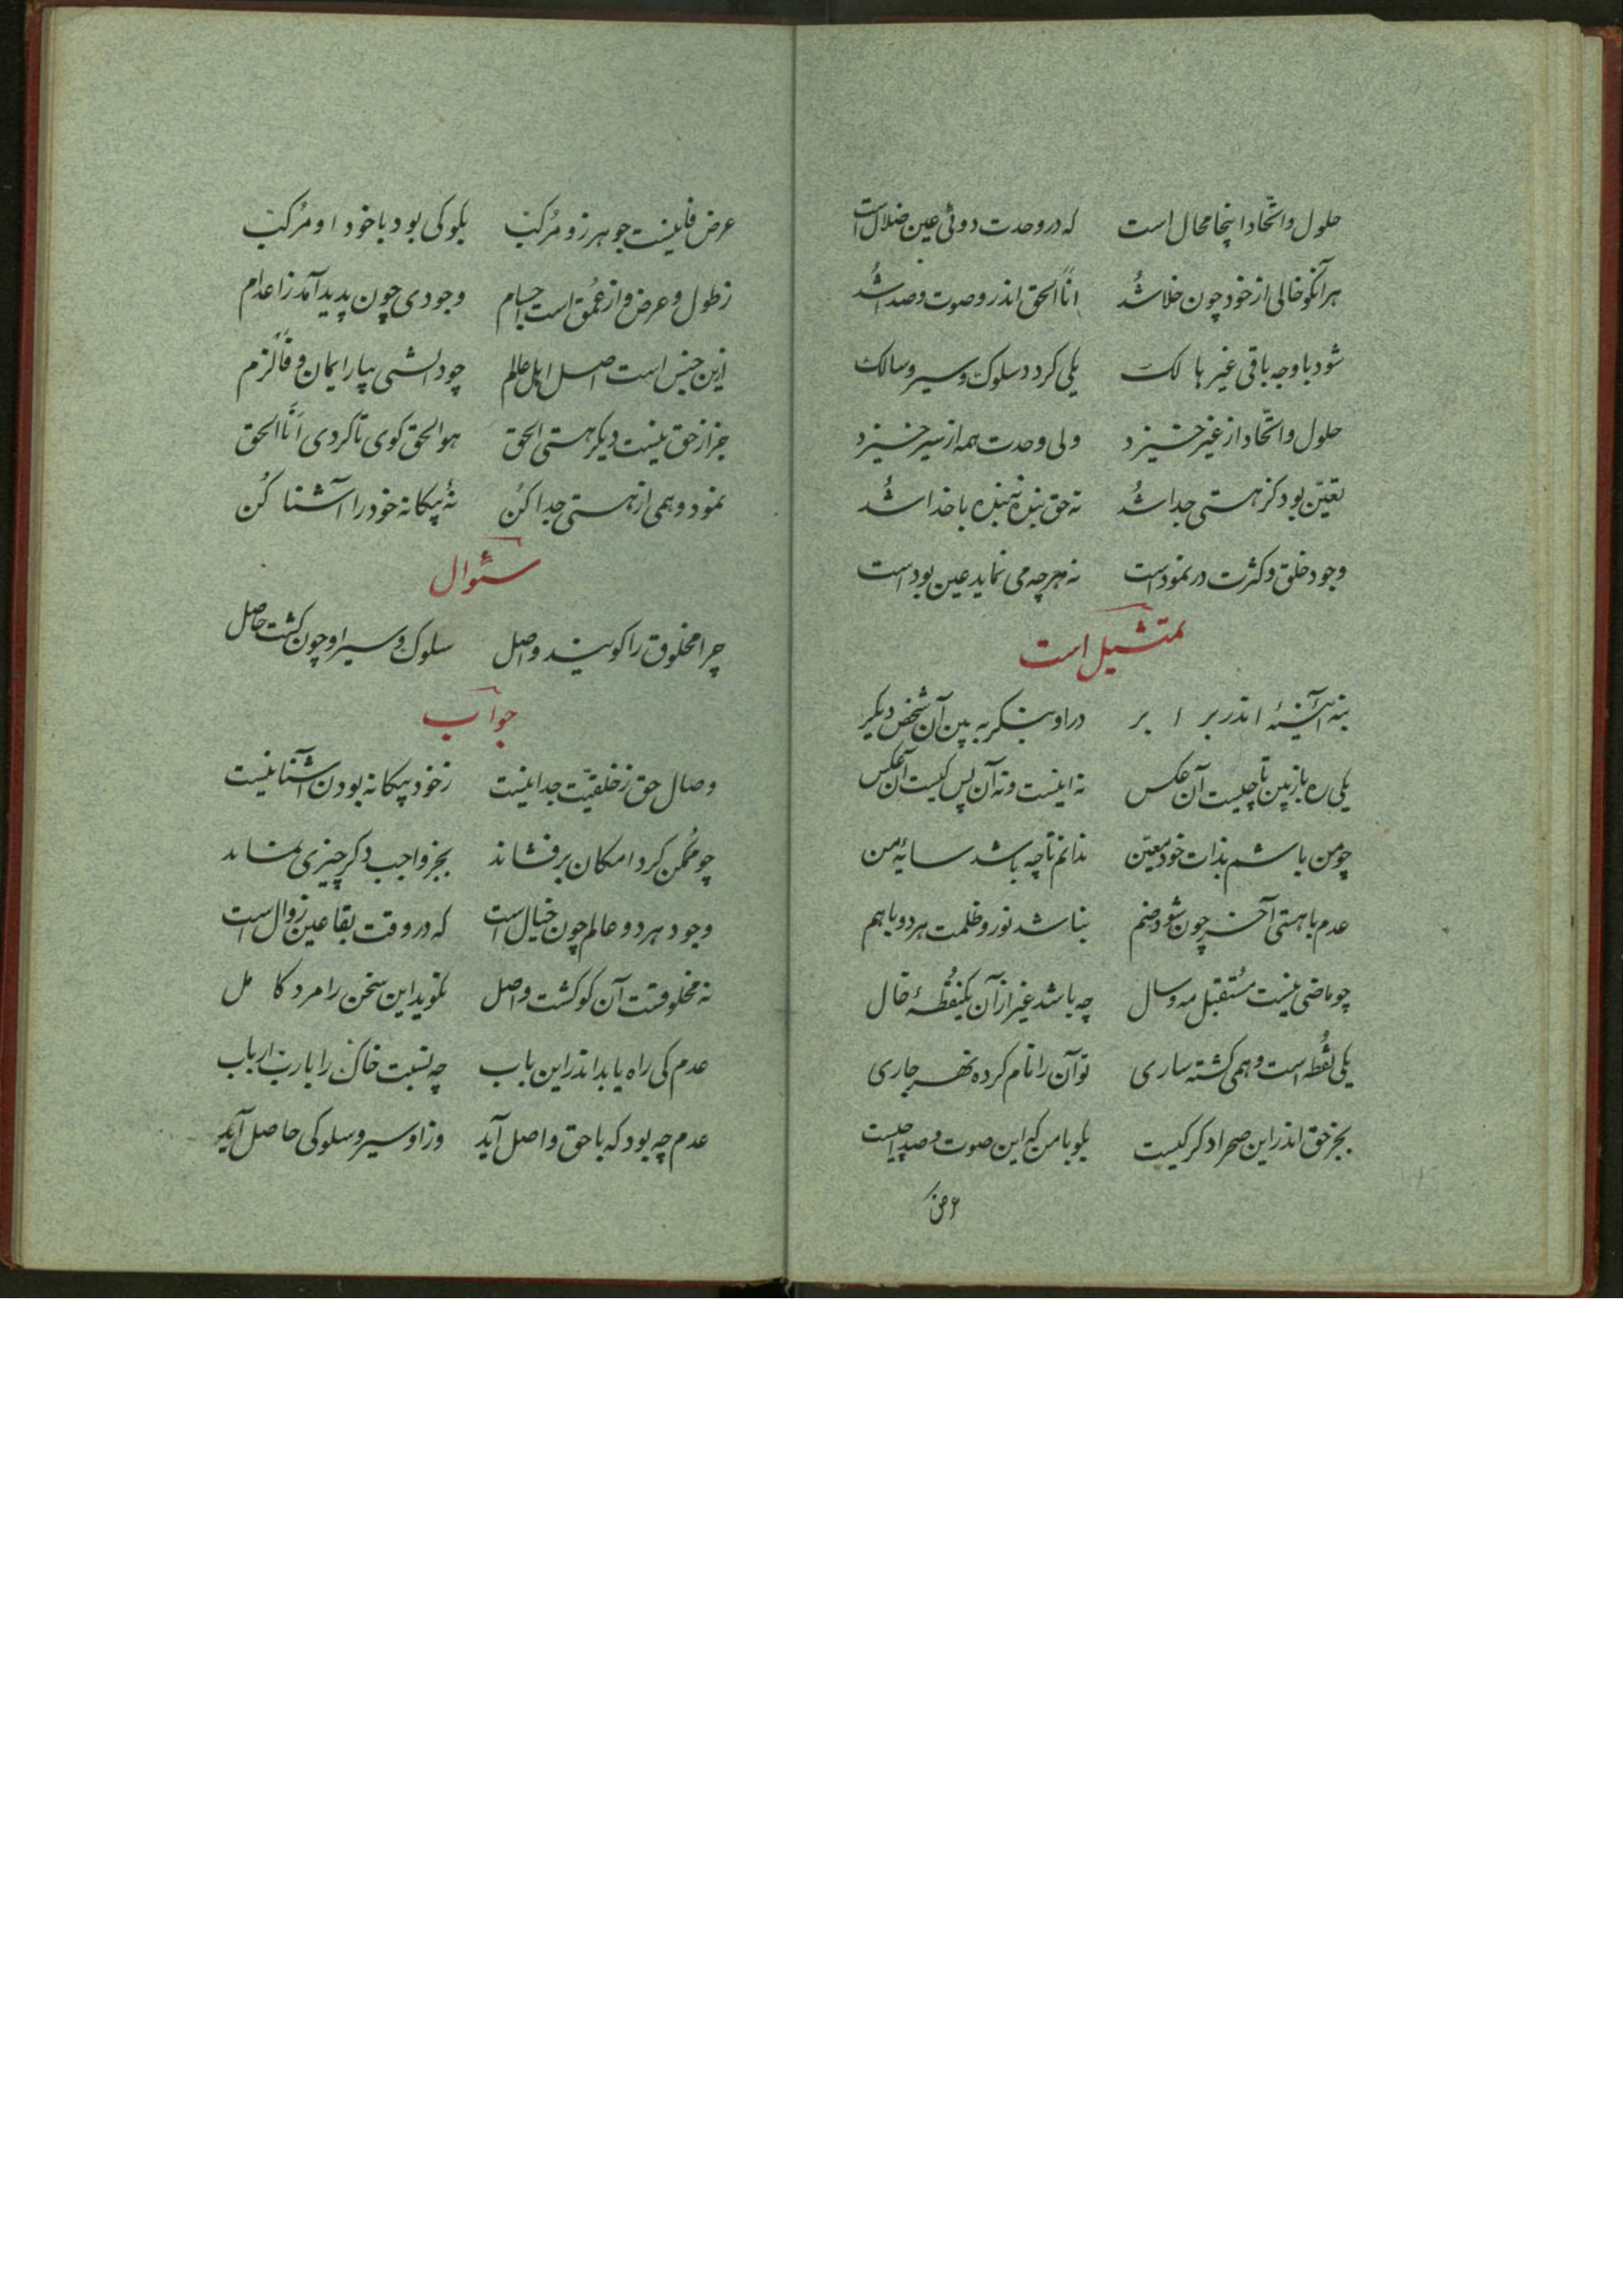 حلول و اتّحاد اینجا محال است که در وحدت دوئی عین ضلال است
هر آنکو خالی از خود چون خلا شُد اناالحق اندر و صوت و صدا شُد
شود با وجه باقی غیر هالک یکی کردد سلوک و سیر و سالک
حلول و اتّحاد از غیر خیزد ولی وحدت همه از سیر خیزد
تعیّن بود کز هستی جدا شُد نه حق بنده نه بنده با خدا شُد
وجود خلق و کثرت در نمود است نه هرچه می نماید عین بود است
تمثیل است
بنه آئینهٔ اندر برابر در او بنکر به بین آن شخص دیکر
یکی ره باز بین تا چیست آن عکس نه اینست و نه آن پس کیست آن عکس
چو من باشم بذات خود معیّن ندانم تا چه باشد سایهٔ من
عدم با هستی آخر چون شود ضم نباشد نور و ظلمت هر دو با هم
چو ماضی نیست مُستقبل مه و سال چه باشد غیر از آن یکنقطهٔ حال
یکی نُقطه است وهمی کشته ساری تو آن را نام کرده نهر جاری
بجز حق اندر این صحرا دکر کیست بکو با من که این صوت و صدا چیست
عرض
عرض فانیست جوهر زو مُرکب بکو کی بود یا خود او مُرکب
ز طول و عرض و از عُمق است اجسام وجودی چون پدید آمد ز اعدام
ازین جنس است اصل اهل عالم چو دانستی بیار ایمان و فالزم
جز از حق نیست دیکر هستی الحق هوالحق کوی تا کردی اناالحق
نمود وهمی از هستی جدا کُن نهٔ بیکانه خود را آشنا کُن
سئوال
چرا مخلوق را کویند واصل سلوک و سیر او چون کشت حاصل
جواب
وصال حق ز خلقیّت جدائیست ز خود بیکانه بودن آشنائیست
چو مُمکن کرد امکان برفشاند بجز واجب دکر چیزی نماند
وجود هر دو عالم چون خیال است که در وقت بقا عین زوال است
نه مخلوقست آن کو کشت واصل نکوید این سخن را مرد کامل
عدم کی راه یابد اندر این باب چه نسبت خاک را با ربّ ارباب
عدم چه بود که با حق واصل آید وز او سیر و سلوکی حاصل آید